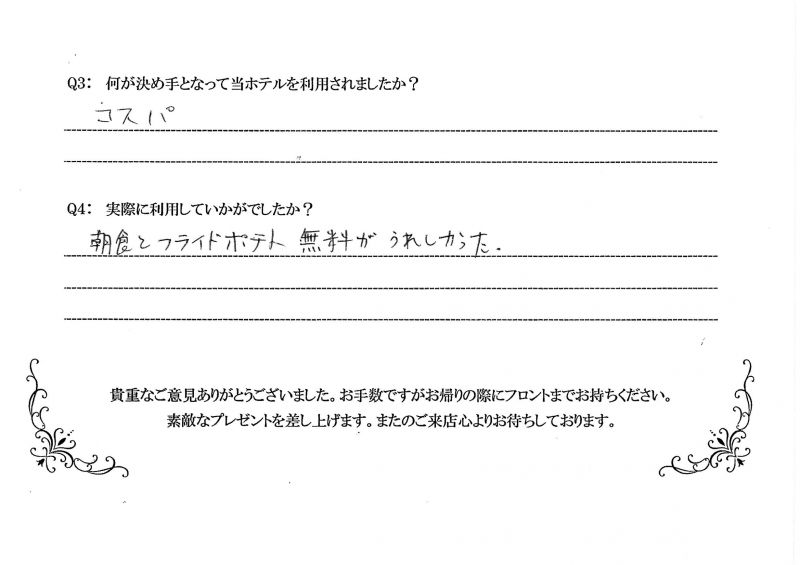 Q3： 何が決め手となって当ホテルを利用されましたか？
コスパ
Q4： 実際に利用していかがでしたか？
朝食とフライドポテト 無料が うれしかった。
貴重なご意見ありがとうございました。お手数ですがお帰りの際にフロントまでお持ちください。
素敵なプレゼントを差し上げます。またのご来店心よりお待ちしております。